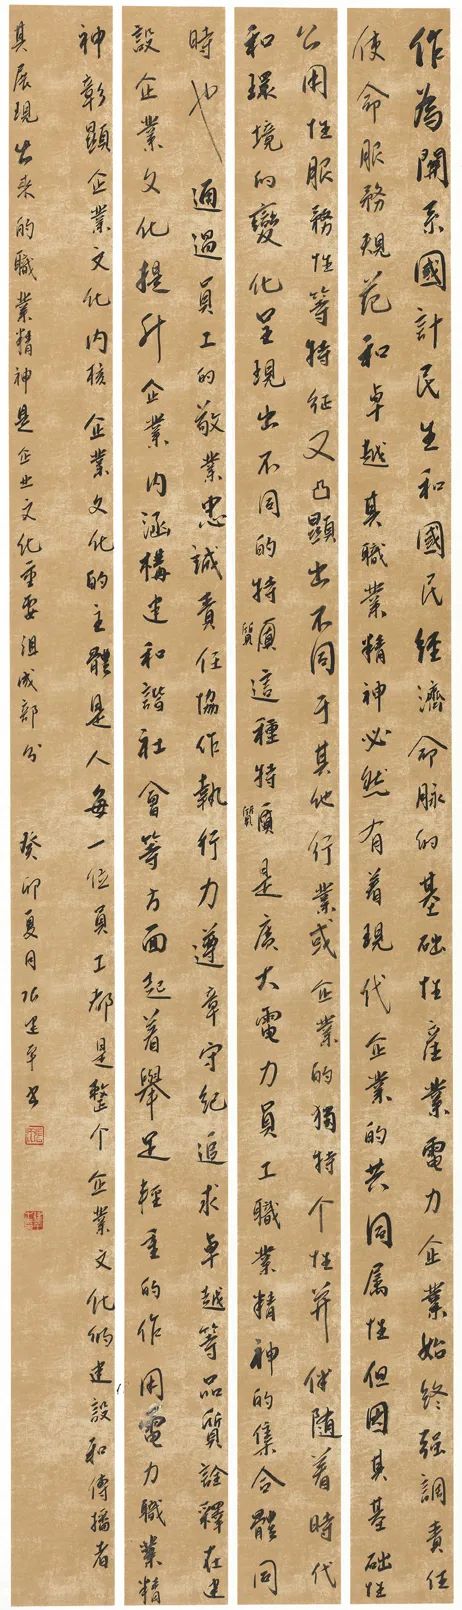 作為關系國計民生和國民經濟命脉的基础性產業電力企業始終强調責任
使命服務規范和卓越其職業精神必然有着現代企業的共同属性但因其基础性
公用性服務性等特征又凸顯出不同于其他行業或企業的獨特个性并伴随着時代
和環境的變化呈現出不同的特質這種特質是廣大電力員工職業精神的集合體同
時也通過員工的敬業忠誠責任協作執行力遵章守紀追求卓越等品質詮釋在建
設企業文化提升企業内涵構建和諧社會等方面起着舉足輕重的作用電力職業精
神彰顯企業文化内核企業文化的主體是人每一位員工都是整个企業文化的建設和傳播者
其展現出来的職業精神是企业文化重要組成部分 癸卯夏月張建平書